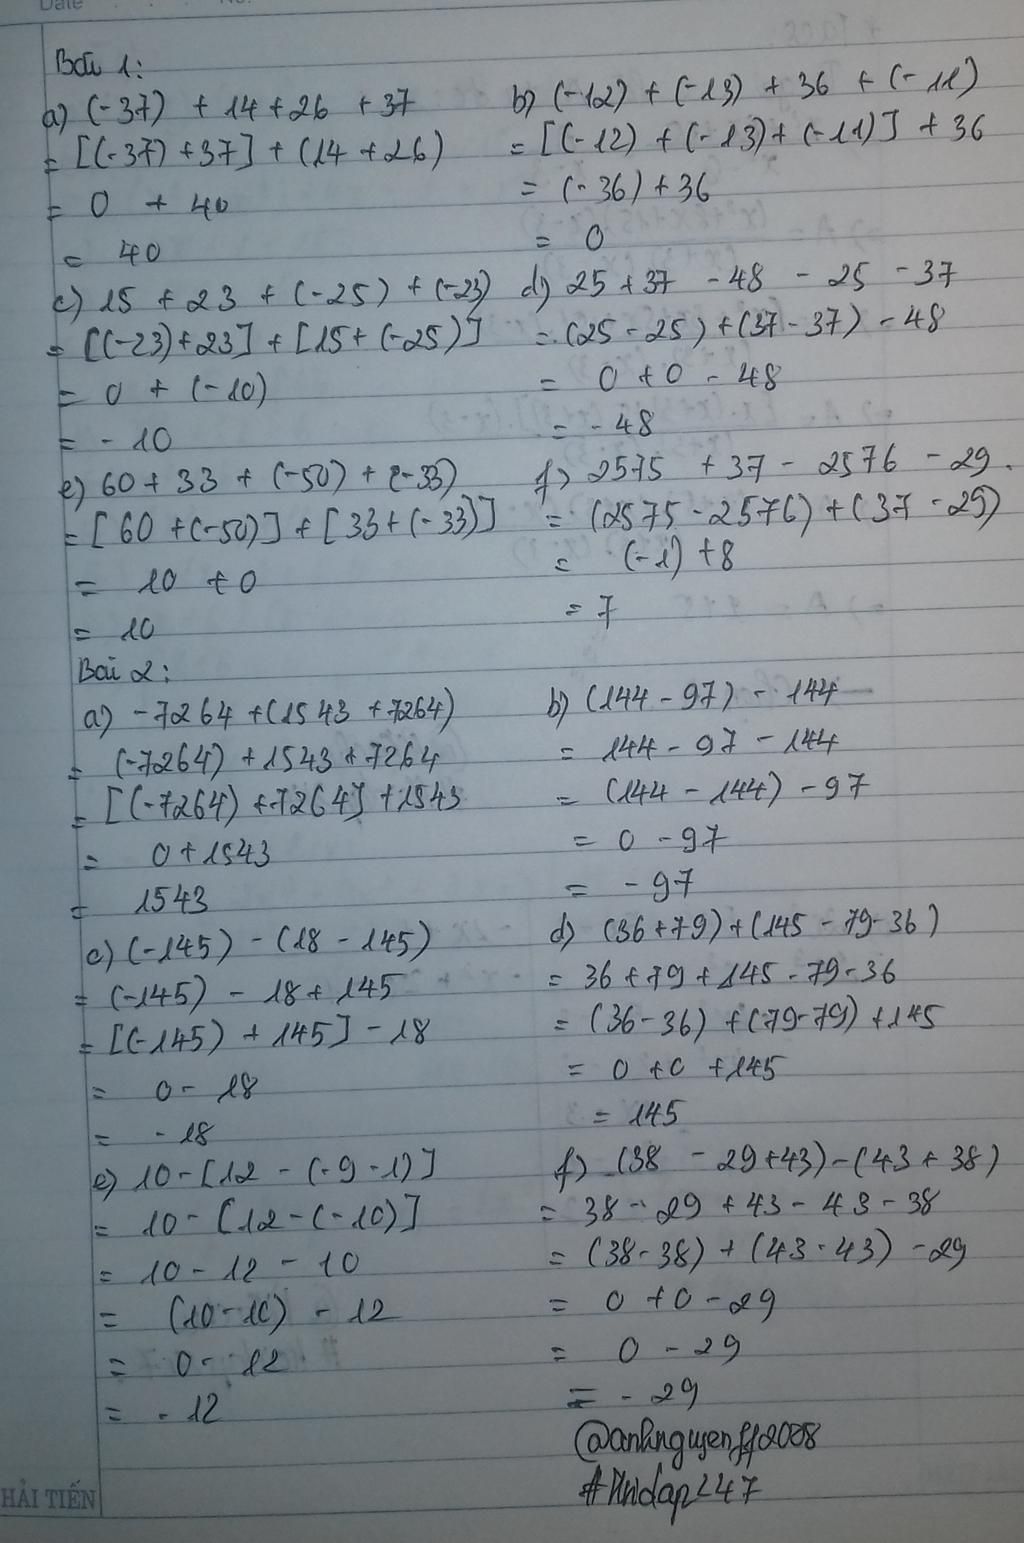 Date No.
Bài 1:
a) (-37) + 14 + 26 + 37
= [(-37) + 37] + (14 + 26)
= 0 + 40
= 40
b) (-12) + (-13) + 36 + (-11)
= [(-12) + (-13) + (-11)] + 36
= (-36) + 36
= 0
c) 15 + 23 + (-25) + (-23)
= [(-23) + 23] + [15 + (-25)]
= 0 + (-10)
= - 10
d) 25 + 37 - 48 - 25 - 37
= (25 - 25) + (37 - 37) - 48
= 0 + 0 - 48
= - 48
e) 60 + 33 + (-50) + (-33)
= [60 + (-50)] + [33 + (-33)]
= 10 + 0
= 10
f) 2575 + 37 - 2576 - 29.
= (2575 - 2576) + (37 - 29)
= (-1) + 8
= 7
Bài 2:
a) -7264 + (1543 + 7264)
= (-7264) + 1543 + 7264
= [(-7264) + 7264] + 1543
= 0 + 1543
= 1543
b) (144 - 97) - 144
= 144 - 97 - 144
= (144 - 144) - 97
= 0 - 97
= - 97
c) (-145) - (18 - 145)
= (-145) - 18 + 145
= [(-145) + 145] - 18
= 0 - 18
= - 18
d) (36 + 79) + (145 - 79 - 36)
= 36 + 79 + 145 - 79 - 36
= (36 - 36) + (79 - 79) + 145
= 0 + 0 + 145
= 145
e) 10 - [12 - (-9 - 1)]
= 10 - [12 - (-10)]
= 10 - 12 - 10
= (10 - 10) - 12
= 0 - 12
= - 12
f) (38 - 29 + 43) - (43 + 38)
= 38 - 29 + 43 - 43 - 38
= (38 - 38) + (43 - 43) - 29
= 0 + 0 - 29
= 0 - 29
= - 29
@anhnguyenff2008
HẢI TIẾN